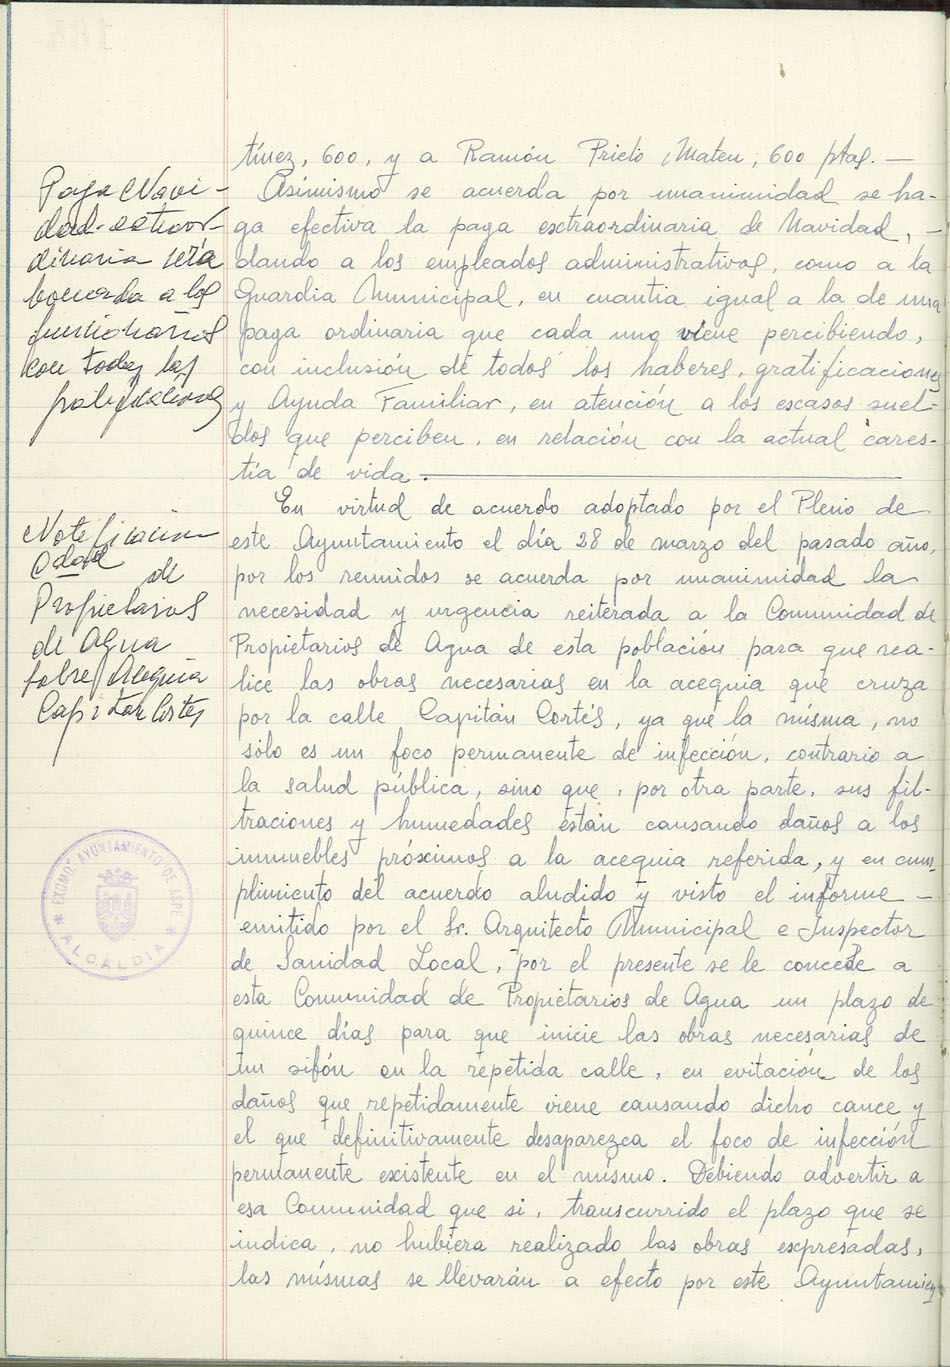 tínez, 600, y a Ramón Prieto Mateu, 600 ptas. —
Asimismo se acuerda por unanimidad se ha-
ga efectiva la paga extraordinaria de Navidad, —
dando a los empleados administrativos, como a la
Guardia Municipal, en cuantia igual a la de una
paga ordinaria que cada uno viene percibiendo,
con inclusión de todos los haberes, gratificaciones
y Ayuda Familiar, en atención a los escasos suel-
dos que perciben, en relación con la actual cares-
tía de vida.
En virtud de acuerdo adoptado por el Pleno de
este Ayuntamiento el día 28 de marzo del pasado año,
por los reunidos se acuerda por unanimidad la
necesidad y urgencia reiterada a la Comunidad de
Propietarios de Agua de esta población para que rea-
lice las obras necesarias en la acequia que cruza
por la calle Capitán Cortés, ya que la misma, no
sólo es un foco permanente de infección, contrario a
la salud pública, sino que, por otra parte, sus fil-
traciones y humedades están causando daños a los
inmuebles próximos a la acequia referida, y en cum-
plimiento del acuerdo aludido y visto el informe —
emitido por el Sr. Arquitecto Municipal e Inspector
de Sanidad Local, por el presente se le concede a
esta Comunidad de Propietarios de Agua un plazo de
quince días para que inicie las obras necesarias de
un sifón en la repetida calle, en evitación de los
daños que repetidamente viene causando dicho cauce y
el que definitivamente desaparezca el foco de infección
permanente existente en el mismo. Debiendo advertir a
esa Comunidad que si, transcurrido el plazo que se
indica, no hubiera realizado las obras expresadas,
las mismas se llevarán a efecto por este Ayuntamien
Paga Navi-
dad extraor-
dinaria
a los
funcionarios
con todas las
Notificacion
de
Propietarios
de Agua
sobre Acequia
Capitan Cortes
EXCMO. AYUNTAMIENTO DE ASPE
* ALCALDIA *